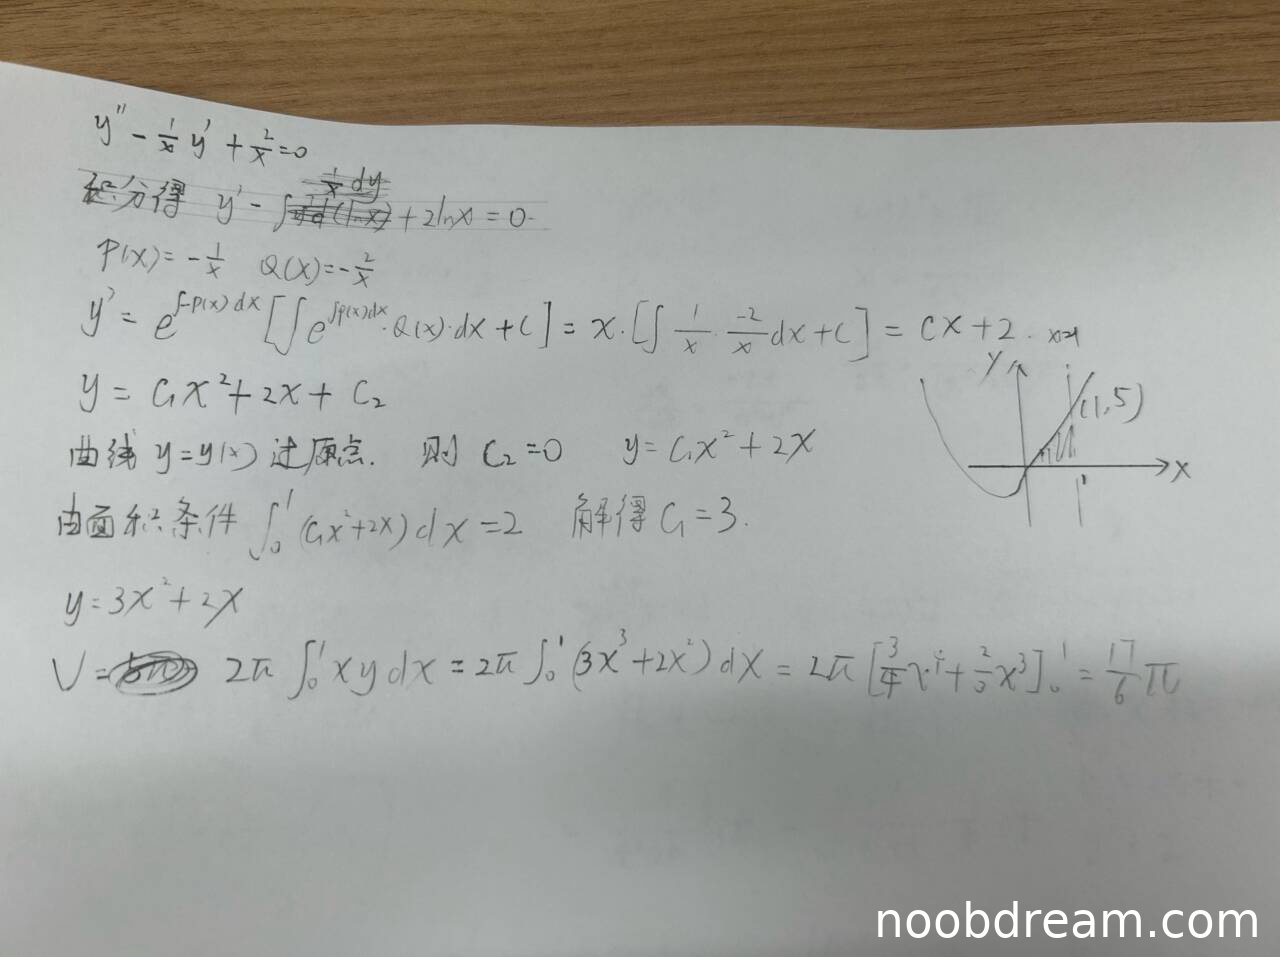 y'' - 1/x y' + 2/x = 0
积分得 y' - ∫ 1/x dy + 2lnx = 0
P(x) = -1/x Q(x) = -2/x
y' = e^{∫-P(x)dx} [∫ e^{∫P(x)dx}·Q(x)·dx + C] = x·[∫ 1/x · -2/x dx + C] = Cx + 2.
x=1
y = C₁x² + 2x + C₂
y
(1,5)
曲线 y=y(x) 过原点. 则 C₂=0 y = C₁x² + 2x
x
1
由面积条件 ∫₀¹ (C₁x²+2x) dx = 2 解得 C₁ = 3.
y = 3x² + 2x
V = 2π ∫₀¹ xy dx = 2π ∫₀¹ (3x³ + 2x²) dx = 2π [3/4 x⁴ + 2/3 x³]₀¹ = 17/6 π
noobdream.com